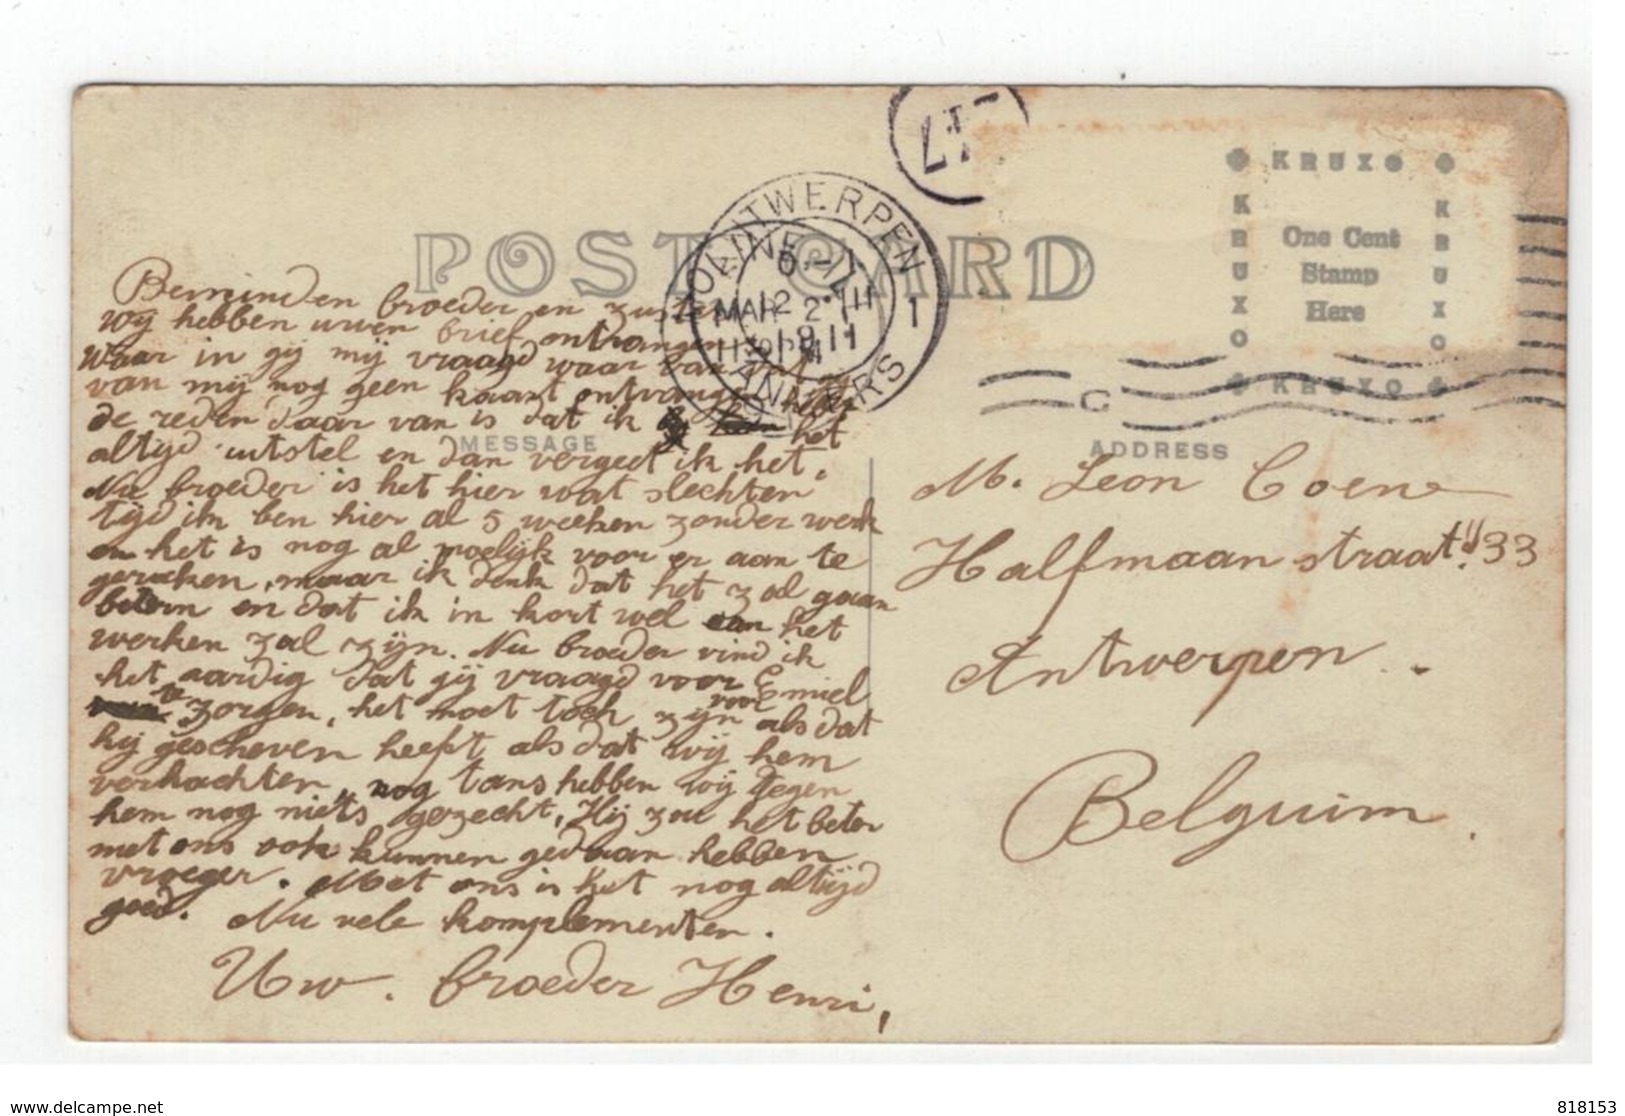 POST CARD
MESSAGE
ADDRESS
KRUXO
KRUXO
One Cent
Stamp
Here
KRUXO
KRUXO
MOLINE ILL
MAR 2
1130 PM
1911
ANTWERPEN 1
ANVERS
12 III
C
Beminden broeder en zuster
wij hebben uwen brief ontvangen
Waar in gij mij vraagd waar van
van mij nog geen kaart ontvangen hebt
de reden daar van is dat ik het
altijd uitstel en dan vergeet ik het.
Nu broeder is het hier wat slechten
tijd ik ben hier al 5 weeken zonder werk
en het is nog al moelijk voor er aan te
geraken, maar ik denk dat het zal gaan
betern en dat ik in kort wel aan het
werken zal zijn. Nu broeder vind ik
het aardig dat gij vraagd voor Emiel
te zorgen, het moet toch zijn voor als dat
hij gescheven heeft als dat wij hem
verhachten, nog tans hebben wij tegen
hem nog niets gezecht, Hij zou het beter
met ons ook kunnen gedaan hebben
vroeger. Met ons is het nog altijd
goed. Nu vele komplementen.
Uw. broeder Henri,
M. Leon Coene
Halfmaan straat. 33
Antwerpen.
Belguim.
www.delcampe.net
818153